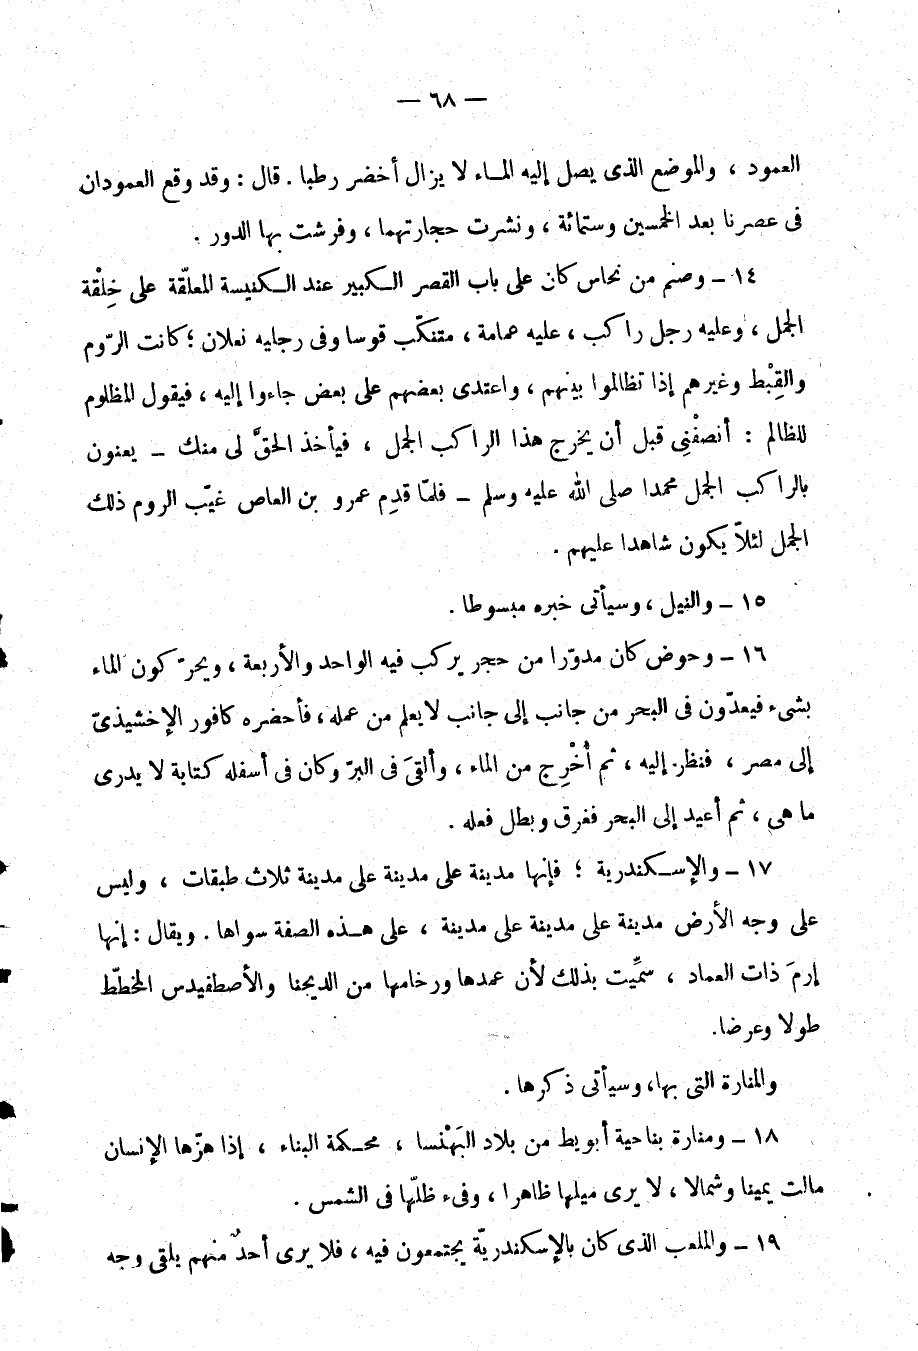 — ٦٨ —
العمود ، والموضع الذى يصل إليه المـاء لا يزال أخضر رطبا . قال : وقد وقع العمودان
فى عصرنا بعد الخمسين وستمائة ، ونشرت حجارتهما ، وفرشت بها الدور .
١٤ – وصنم من نحاس كان على باب القصر الكبير عند الكنيسة المعلّقة على خِلْقة
الجمل ، وعليه رجل راكب ، عليه عمامة ، متنكّب قوسا وفى رجليه نعلان ؛ كانت الرّوم
والقِبْط وغيرهم إذا تظالموا بينهم ، واعتدى بعضهم على بعض جاءوا إليه ، فيقول المظلوم
للظالم : أنصفْنِى قبل أن يخرج هذا الراكب الجمل ، فيأخذ الحقَّ لى منك – يعنون
بالراكب الجمل محمدا صلى الله عليه وسلم – فلمّا قدِم عمرو بن العاص غيّب الروم ذلك
الجمل لئلاّ يكون شاهدا عليهم .
١٥ – والنيل ، وسيأتى خبره مبسوطا .
١٦ – وحوض كان مدوّرا من حجر يركب فيه الواحد والأربعة ، ويحرّكون الماء
بشىء فيعدّون فى البحر من جانب إلى جانب لا يعلم من عمله ، فأحضره كافور الإخشيذىّ
إلى مصر ، فنظر إليه ، ثم أُخْرِج من الماء ، وألقىَ فى البرّ وكان فى أسفله كتابة لا يدرى
ما هى ، ثم أعيد إلى البحر فغرق وبطل فعله .
١٧ – والإسـكندرية ؛ فإنها مدينة على مدينة على مدينة ثلاث طبقات ، وليس
على وجه الأرض مدينة على مدينة على مدينة ، على هـذه الصفة سواها . ويقال : إنها
إرمَ ذات العماد ، سمِّيت بذلك لأن عمدها ورخامها من الديجنا والأصطفيدس المخطّط
طولا وعرضا.
والمنارة التى بها، وسيأتى ذكرها .
١٨ – ومنارة بناحية أبويط من بلاد البَهْنسا ، محـكمة البناء ، إذا هزّها الإنسان
مالت يمينا وشمالا ، لا يرى ميلها ظاهرا ، وفىء ظلّها فى الشمس .
١٩ – والملعب الذى كان بالإسكندريّة يجتمعون فيه ، فلا يرى أحدٌ منهم يلقى وجه